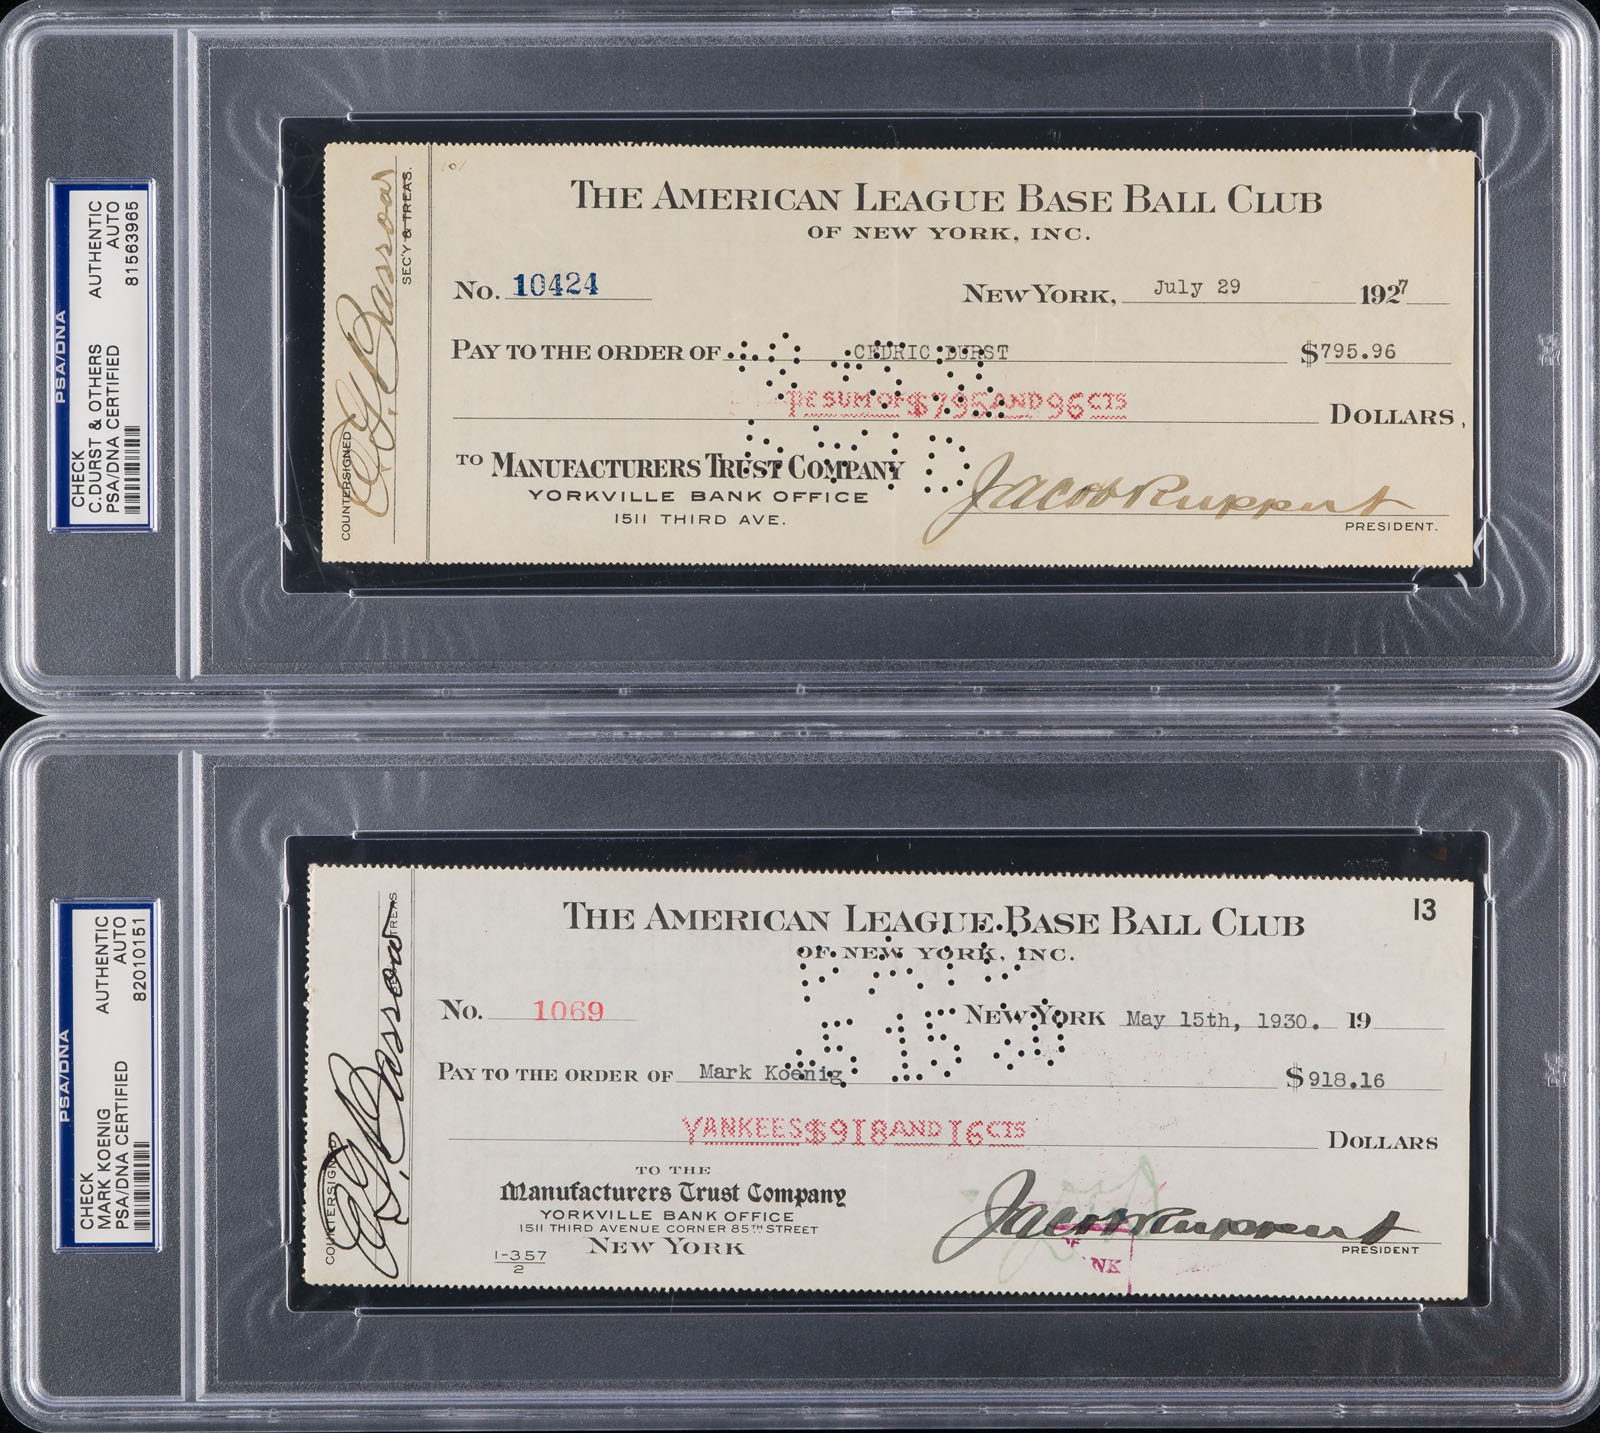 PSA/DNA
CHECK AUTHENTIC
C.DURST & OTHERS AUTO
PSA/DNA CERTIFIED 81563965
COUNTERSIGNED
SEC'Y & TREAS.
THE AMERICAN LEAGUE BASE BALL CLUB
OF NEW YORK, INC.
No. 10424 NEW YORK, July 29 1927
PAY TO THE ORDER OF CEDRIC DURST $795.96
THE SUM OF $795 AND 96 CTS DOLLARS,
TO MANUFACTURERS TRUST COMPANY
YORKVILLE BANK OFFICE
1511 THIRD AVE.
Jacob Ruppert
PRESIDENT.
PSA/DNA
CHECK AUTHENTIC
MARK KOENIG AUTO
PSA/DNA CERTIFIED 82010151
COUNTERSIGNED
TREAS
13
THE AMERICAN LEAGUE BASE BALL CLUB
OF NEW YORK, INC.
No. 1069 NEW YORK May 15th, 1930. 19
PAY TO THE ORDER OF Mark Koenig $918.16
YANKEES $918 AND 16 CTS DOLLARS
TO THE
Manufacturers Trust Company
YORKVILLE BANK OFFICE
1511 THIRD AVENUE CORNER 85TH STREET
NEW YORK
1-357
2
Jacob Ruppert
PRESIDENT
NK